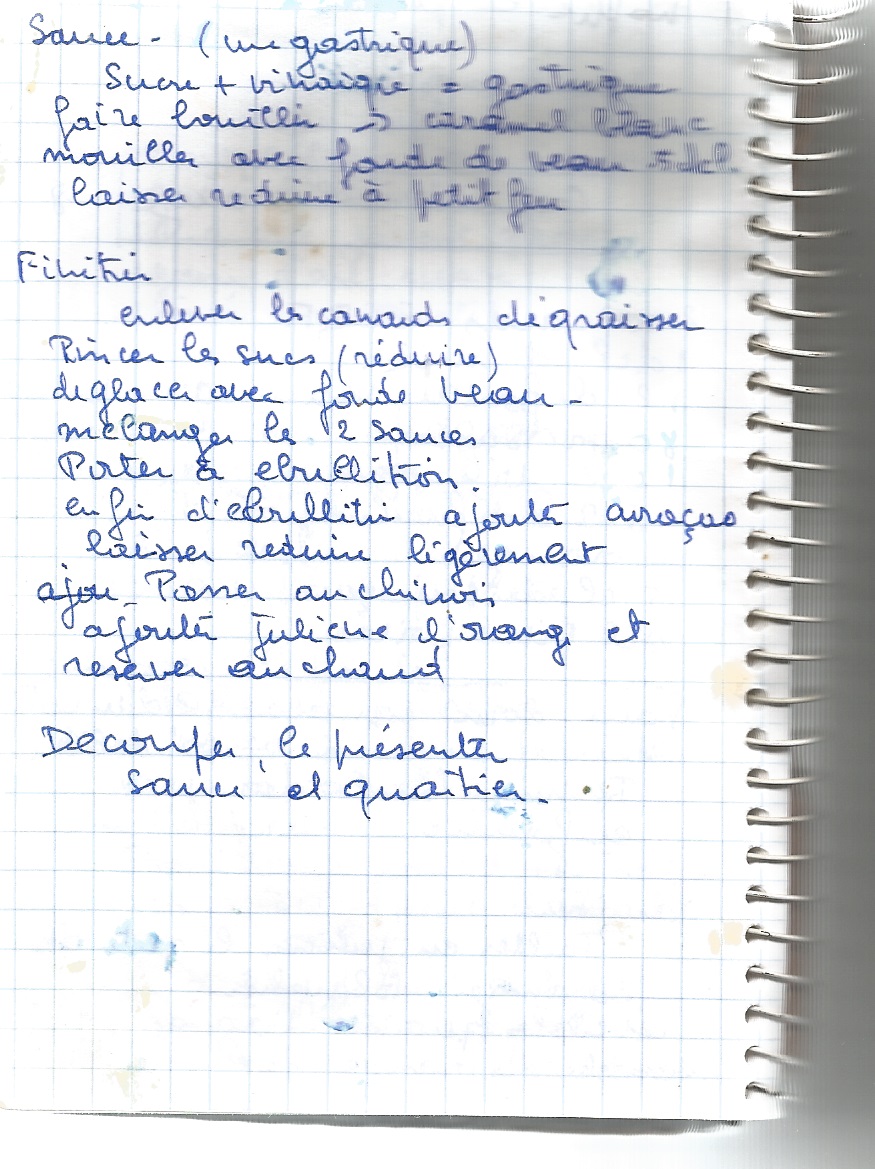 Sauce - (une gastrique)
Sucre + vinaigre = gastrique
faire bouillir → caramel blanc
mouiller avec fonds de veau 5 dcl
laisser reduire à petit feu
Finition
enlever les canards dégraisser
Pincer les sucs (réduire)
deglacer avec fonds veau -
mélanger les 2 sauces
Porter à ebullition.
en fin d'ebullition ajouter curaçao
laisser reduire légèrement
ajou Passer au chinois
ajouter julienne d'orange et
reserver au chaud
Decouper, le présenter
sauce et quartier.